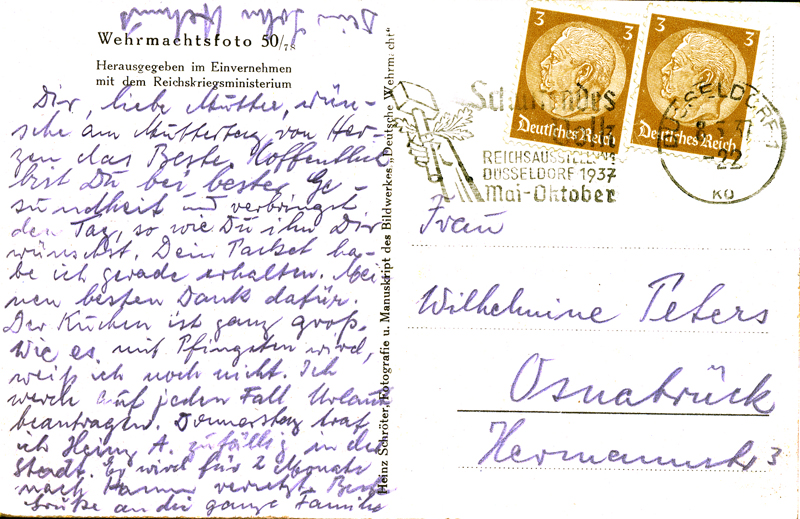 Dein Sohn Helmut
Wehrmachtsfoto 50/7a
Herausgegeben im Einvernehmen
mit dem Reichskriegsministerium
Dir, liebe Mutter, wün-
sche am Muttertag von Her-
zen das Beste. Hoffentlich
bist Du bei bester Ge-
sundheit und verbringst
den Tag, so wie Du ihn Dir
wünschst. Dein Packet ha-
be ich gerade erhalten. Mei-
nen besten Dank dafür.
Der Kuchen ist ganz groß.
Wie es mit Pfingsten wird,
weiß ich noch nicht. Ich
werde auf jeden Fall Urlaub
beantragen. Donnerstag traf
ich Heinz A. zufällig in der
Stadt. Er wird für 2 Monate
nach Hamm versetzt. Beste
Grüße an die ganze Familie
Heinz Schröter, Fotografie u. Manuskript des Bildwerkes „Deutsche Wehrmacht“
3 3
Deutsches Reich
3 3
Deutsches Reich
Schaffendes
Volk
REICHSAUSSTELLUNG
DÜSSELDORF 1937
Mai-Oktober
DÜSSELDORF 1
8.5.37
-22
KO
Frau
Wilhelmine Peters
Osnabrück
Hermannstr 3